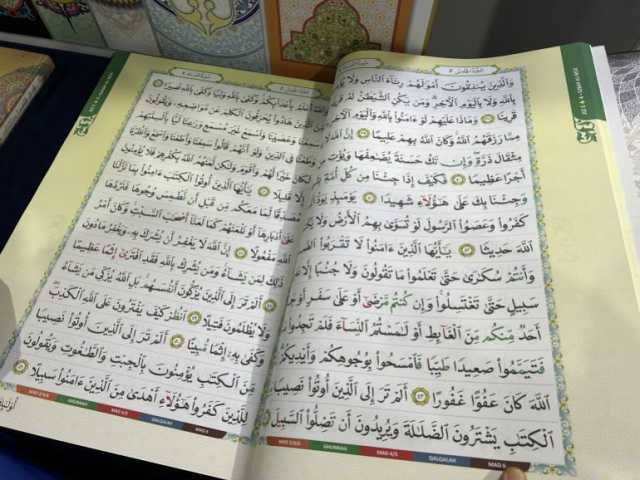 وَٱلَّذِينَ يُنفِقُونَ أَمْوَٰلَهُمْ رِئَآءَ ٱلنَّاسِ وَلَا
بِٱللَّهِ وَلَا بِٱلْيَوْمِ ٱلْآخِرِ وَمَن يَكُنِ ٱلشَّيْطَٰنُ لَهُۥ
قَرِينًا ٣٨ وَمَاذَا عَلَيْهِمْ لَوْ ءَامَنُوا۟ بِٱللَّهِ وَٱلْيَوْمِ ٱلْآخِرِ
مِمَّا رَزَقَهُمُ ٱللَّهُ وَكَانَ ٱللَّهُ بِهِمْ عَلِيمًا ٣٩ إِنَّ ٱللَّهَ
مِثْقَالَ ذَرَّةٍ وَإِن تَكُ حَسَنَةً يُضَٰعِفْهَا وَيُؤْتِ
أَجْرًا عَظِيمًا ٤٠ فَكَيْفَ إِذَا جِئْنَا مِن كُلِّ أُمَّةٍ
وَجِئْنَا بِكَ عَلَىٰ هَٰٓؤُلَآءِ شَهِيدًا ٤١ يَوْمَئِذٍ يَوَدُّ
كَفَرُوا۟ وَعَصَوُا۟ ٱلرَّسُولَ لَوْ تُسَوَّىٰ بِهِمُ ٱلْأَرْضُ وَلَا
ٱللَّهَ حَدِيثًا ٤٢ يَٰٓأَيُّهَا ٱلَّذِينَ ءَامَنُوا۟ لَا تَقْرَبُوا۟
وَأَنتُمْ سُكَٰرَىٰ حَتَّىٰ تَعْلَمُوا۟ مَا تَقُولُونَ وَلَا جُنُبًا إِلَّا
سَبِيلٍ حَتَّىٰ تَغْتَسِلُوا۟ وَإِن كُنتُم مَّرْضَىٰٓ أَوْ عَلَىٰ سَفَرٍ أَوْ
أَحَدٌ مِّنكُم مِّنَ ٱلْغَآئِطِ أَوْ لَٰمَسْتُمُ ٱلنِّسَآءَ فَلَمْ تَجِدُوا۟
فَتَيَمَّمُوا۟ صَعِيدًا طَيِّبًا فَٱمْسَحُوا۟ بِوُجُوهِكُمْ وَأَيْدِيكُمْ
ٱللَّهَ كَانَ عَفُوًّا غَفُورًا ٤٣ أَلَمْ تَرَ إِلَى ٱلَّذِينَ أُوتُوا۟ نَصِيبًا
ٱلْكِتَٰبِ يَشْتَرُونَ ٱلضَّلَٰلَةَ وَيُرِيدُونَ أَن تَضِلُّوا۟ ٱلسَّبِيلَ
GHUNNAH MAD 4/5 QALQALAH MAD 6
أَعْلَمُ بِأَعْدَآئِكُمْ وَكَفَىٰ بِٱللَّهِ وَلِيًّا وَكَفَىٰ بِٱللَّهِ نَصِيرًا ٤٥
هَادُوا۟ يُحَرِّفُونَ ٱلْكَلِمَ عَن مَّوَاضِعِهِۦ وَيَقُولُونَ
وَعَصَيْنَا وَٱسْمَعْ غَيْرَ مُسْمَعٍ وَرَٰعِنَا لَيًّۢا بِأَلْسِنَتِهِمْ
وَطَعْنًا فِى ٱلدِّينِ وَلَوْ أَنَّهُمْ قَالُوا۟ سَمِعْنَا وَأَطَعْنَا وَٱسْمَعْ وَٱنظُرْنَا
لَكَانَ خَيْرًا لَّهُمْ وَأَقْوَمَ وَلَٰكِن لَّعَنَهُمُ ٱللَّهُ بِكُفْرِهِمْ فَلَا يُؤْمِنُونَ
إِلَّا قَلِيلًا ٤٦ يَٰٓأَيُّهَا ٱلَّذِينَ أُوتُوا۟ ٱلْكِتَٰبَ ءَامِنُوا۟ بِمَا نَزَّلْنَا
مُصَدِّقًا لِّمَا مَعَكُم مِّن قَبْلِ أَن نَّطْمِسَ وُجُوهًا فَنَرُدَّهَا
عَلَىٰٓ أَدْبَارِهَآ أَوْ نَلْعَنَهُمْ كَمَا لَعَنَّآ أَصْحَٰبَ ٱلسَّبْتِ وَكَانَ أَمْرُ
ٱللَّهِ مَفْعُولًا ٤٧ إِنَّ ٱللَّهَ لَا يَغْفِرُ أَن يُشْرَكَ بِهِۦ وَيَغْفِرُ مَا دُونَ
ذَٰلِكَ لِمَن يَشَآءُ وَمَن يُشْرِكْ بِٱللَّهِ فَقَدِ ٱفْتَرَىٰٓ إِثْمًا عَظِيمًا
٤٨ أَلَمْ تَرَ إِلَى ٱلَّذِينَ يُزَكُّونَ أَنفُسَهُم بَلِ ٱللَّهُ يُزَكِّى مَن يَشَآءُ
وَلَا يُظْلَمُونَ فَتِيلًا ٤٩ ٱنظُرْ كَيْفَ يَفْتَرُونَ عَلَى ٱللَّهِ ٱلْكَذِبَ
وَكَفَىٰ بِهِۦٓ إِثْمًا مُّبِينًا ٥٠ أَلَمْ تَرَ إِلَى ٱلَّذِينَ أُوتُوا۟ نَصِيبًا
مِّنَ ٱلْكِتَٰبِ يُؤْمِنُونَ بِٱلْجِبْتِ وَٱلطَّٰغُوتِ وَيَقُولُونَ
لِلَّذِينَ كَفَرُوا۟ هَٰٓؤُلَآءِ أَهْدَىٰ مِنَ ٱلَّذِينَ ءَامَنُوا۟ سَبِيلًا ٥١